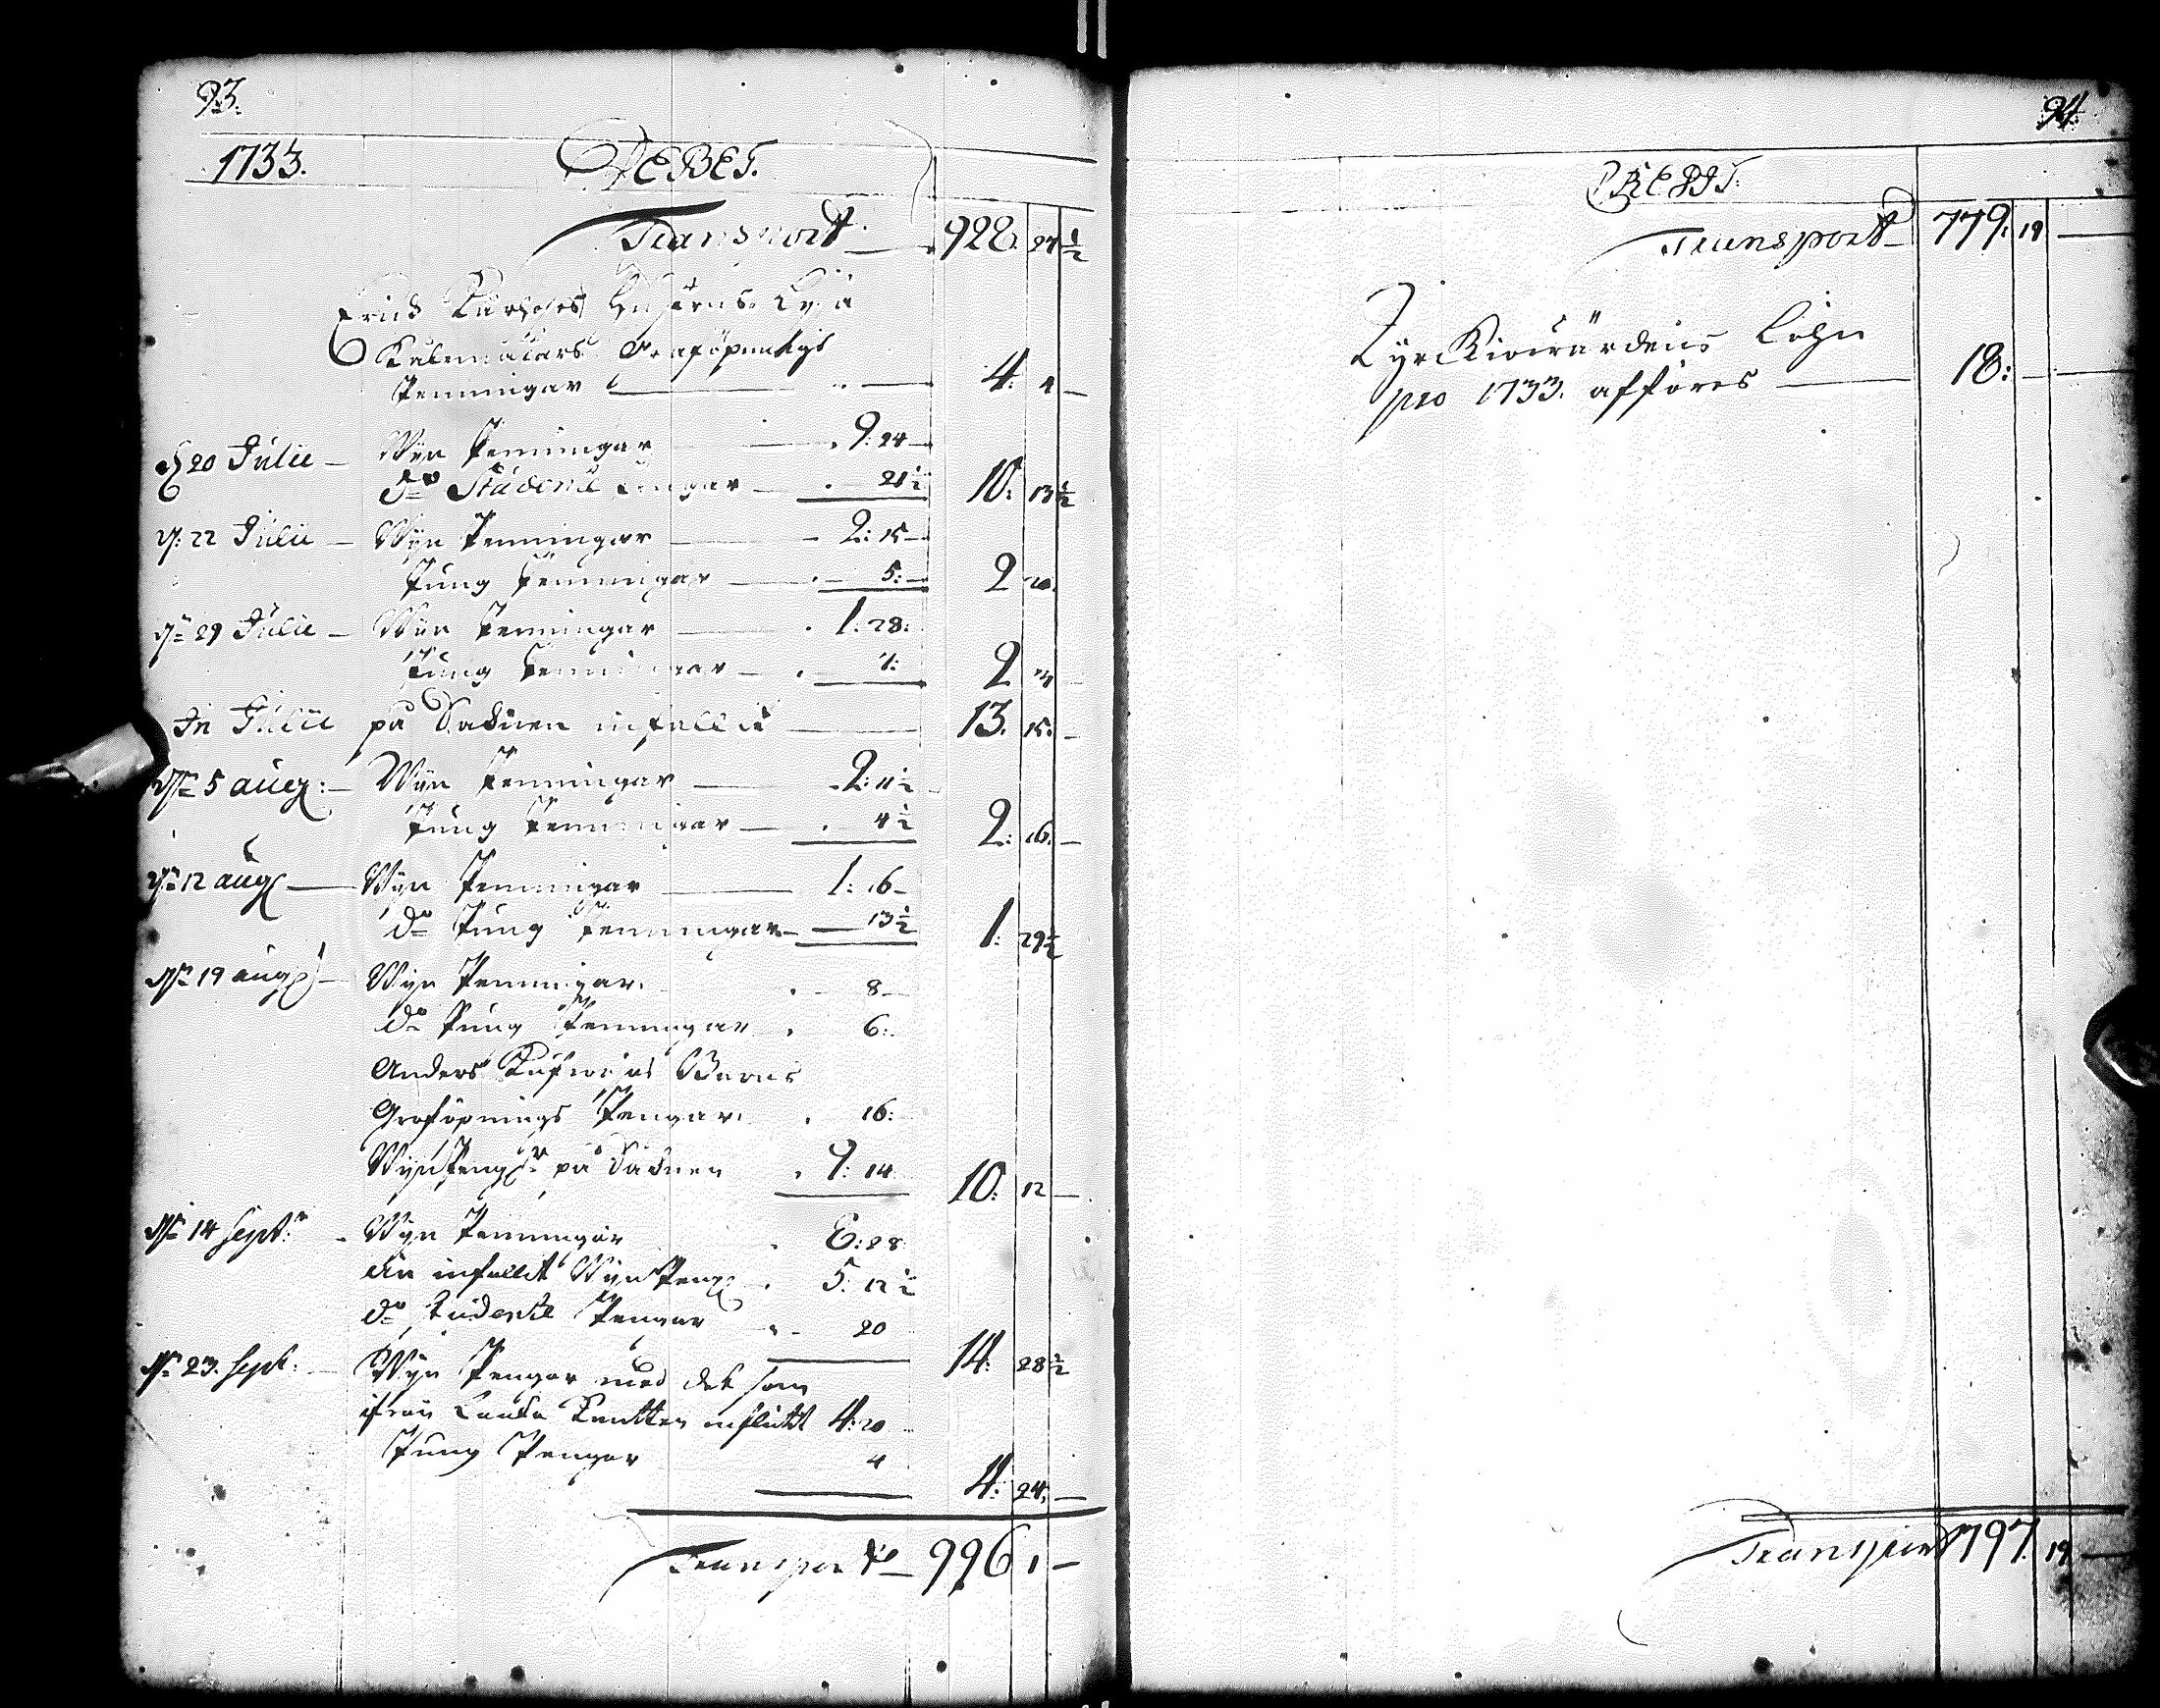 93.
1733. DEBET.
Transport 928. 27 ½
Erick
Penningar 4: 4 —
d 20 Julii — Wijn Penningar . 9: 24 —
do Studente Pengar — . 21 ½ 10: 13 ½
d: 22 Julii — Wijn Penningar — 2: 15 —
Pung Penningar — . — 5: — 2 20.
dn 29 Julii — Wijn Penningar . 1. 28:
Pung Penningar — . 7: 2
In Julii på Såcknen infallit 13. 15. —
dn 5 aug: — Wijn Penningar — 2: 11 ½
Pung Penningar — . 4 ½ 2: 16. —
dn 12 aug — Wijn Penningar 1: 16 —
do Pung Penningar — 13 ½ 1: 29 ½
dn 19 aug — Wijn Penningar. . — 8 —
do Pung Penningar . 6:.
Anders Barns
Graföpnings Pengar. . 16:
WijnPengr på Såcknen . 9: 14 10: 12 —
dn 14 Septr. Wijn Penningar . 6: 28
än infallit Wijn Peng: . 5: 12 ½
do Studente Pengar . — 20 14: 28 ½
dn 23. Sept: — Wijn Pengar med det som
ifrån influtit 4: 20
Pung Pengar 4 4: 24. —
Transport 996 1 —
94.
CREDIT:
Transport 779. 19 —
Kyrckiowärdens Löhn
pro 1733. afföres — 18: — —
Transport 797. 19 —